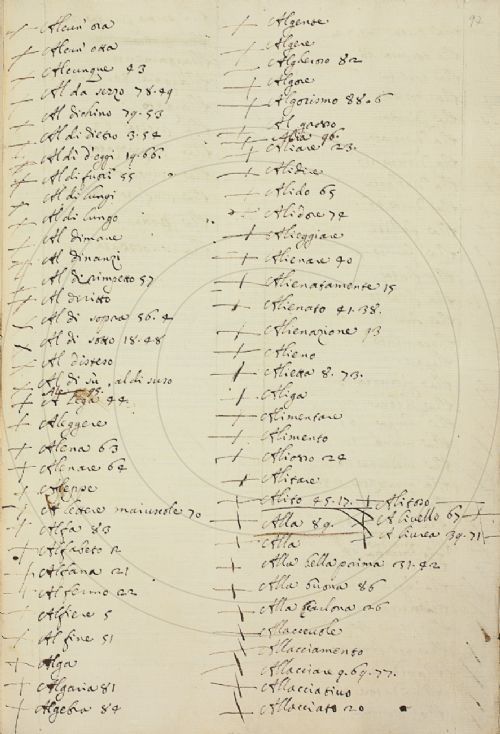 92
Alcun' ora
Alcun' otta
Alcunque 43
Al da sezzo 78.49
Al dichino 79.53
Al di dietro 3.54
Al di d'oggi 19.66.
Al di fuori 55
Al di lungi
Al di lungo
Al dimane
Al dinanzi
Al dirimpetto 57
Al diritto
Al di sopra 56.4
Al di sotto 18.48
Al disteso
Al di su, al di suso
A lega 44
Aleggere
Alena 63
Alenare 64
Aleppe
A lettere maiuscole 70
Alfa 83
Alfabeto 2
Alfana 21
Al fermo 22
Alfiere 5
Al fine 51
Alga
Algaria 81
Algebra 84
Algente
Algere
Alghoroso 82
Algore
Algorismo 88.6
Al grosso
Alia 96.
Aliare 23.
Alidire
Alido 65
Alidore 74
Alieggiare
Alienare 40
Alienatamente 15
Alienato 41.38.
Alienazione 93
Alieno
Alietta 8.73.
Aliga
Alimentare
Alimento
Aliosso 24
Alitare
Alito 45.17. Alitoso
Alla 89. A livello 67
Alla A livrea 39.71
Alla bella prima 31.42
Alla buona 86
Alla carlona 26
Allaccevole
Allacciamento
Allacciare 9.69.77.
Allacciativo
Allacciato 20